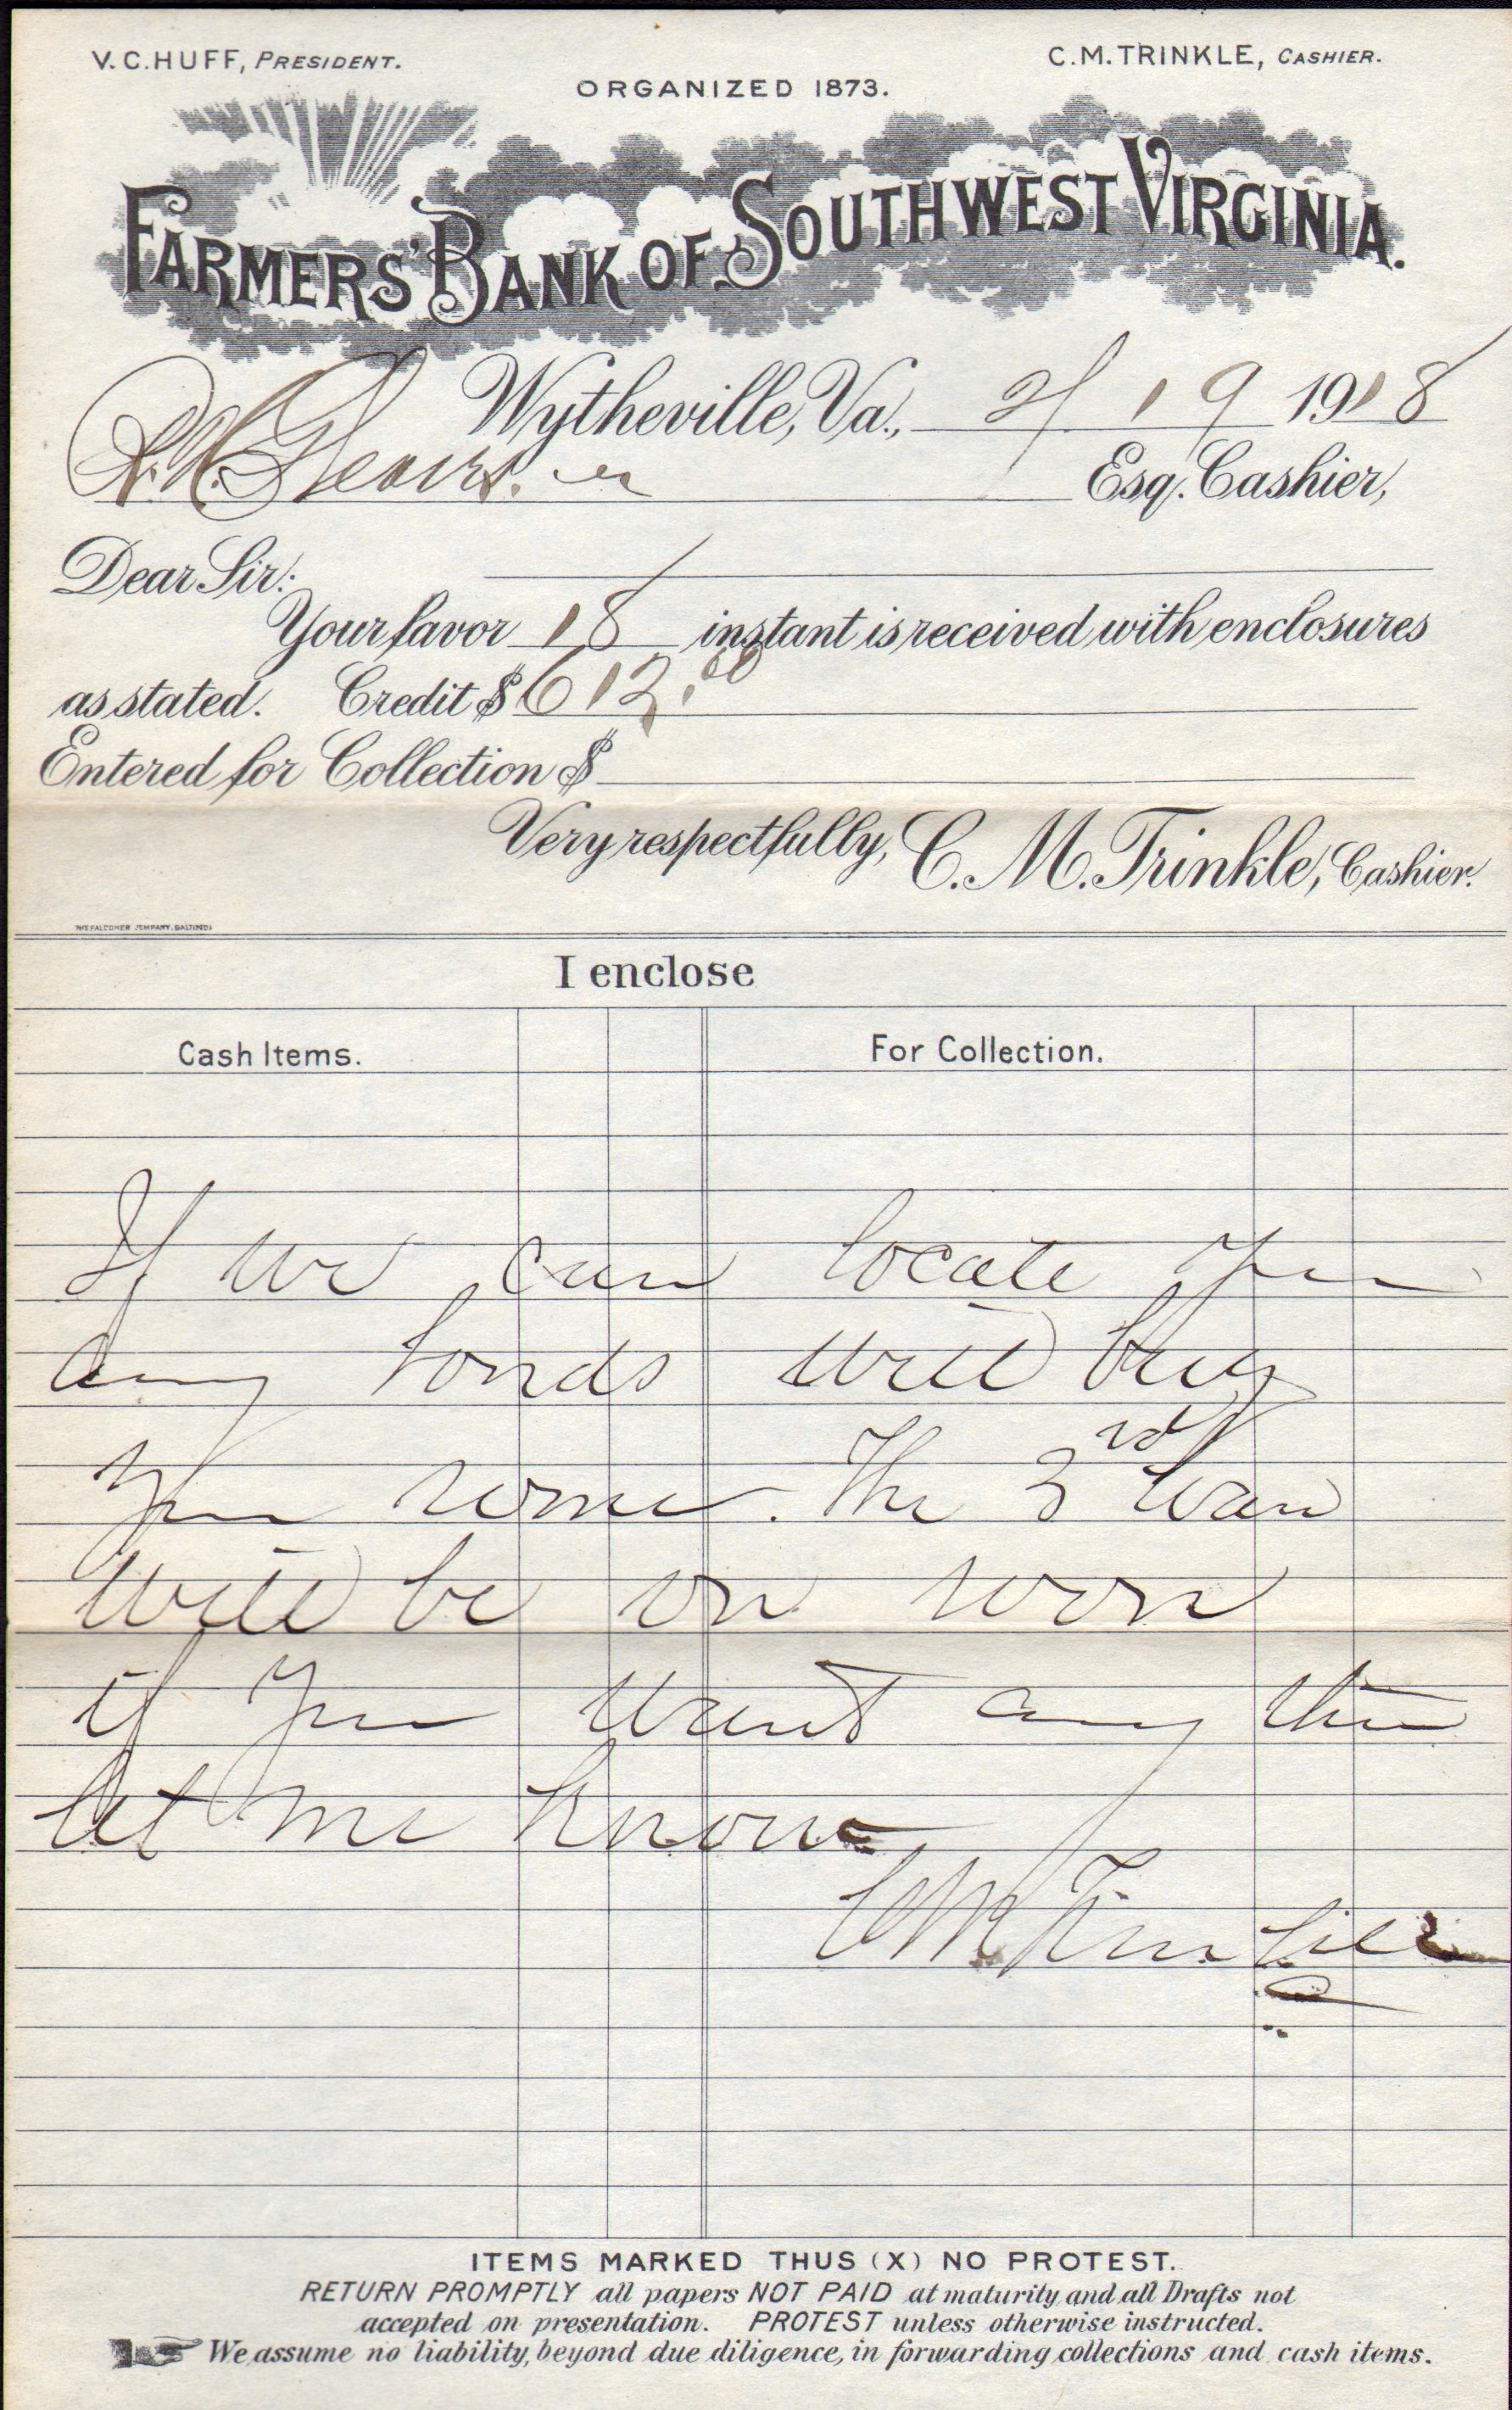 V. C. HUFF, PRESIDENT.
C. M. TRINKLE, CASHIER.
ORGANIZED 1873.
FARMERS' BANK OF SOUTHWEST VIRGINIA.
Wytheville, Va., 2/19 1918
Esq. Cashier,
Dear Sir:
Your favor 18 instant is received with enclosures
as stated. Credit $ 612.00
Entered for Collection $
Very respectfully, C. M. Trinkle, Cashier.
THE FALCONER COMPANY, BALTIMORE
I enclose
Cash Items.
For Collection.
If we can locate you
any bonds will buy
you some. The 3rd loan
will be on soon
if you want any then
let me know
C M Trinkle
ITEMS MARKED THUS (X) NO PROTEST.
RETURN PROMPTLY all papers NOT PAID at maturity and all Drafts not
accepted on presentation. PROTEST unless otherwise instructed.
We assume no liability, beyond due diligence, in forwarding collections and cash items.